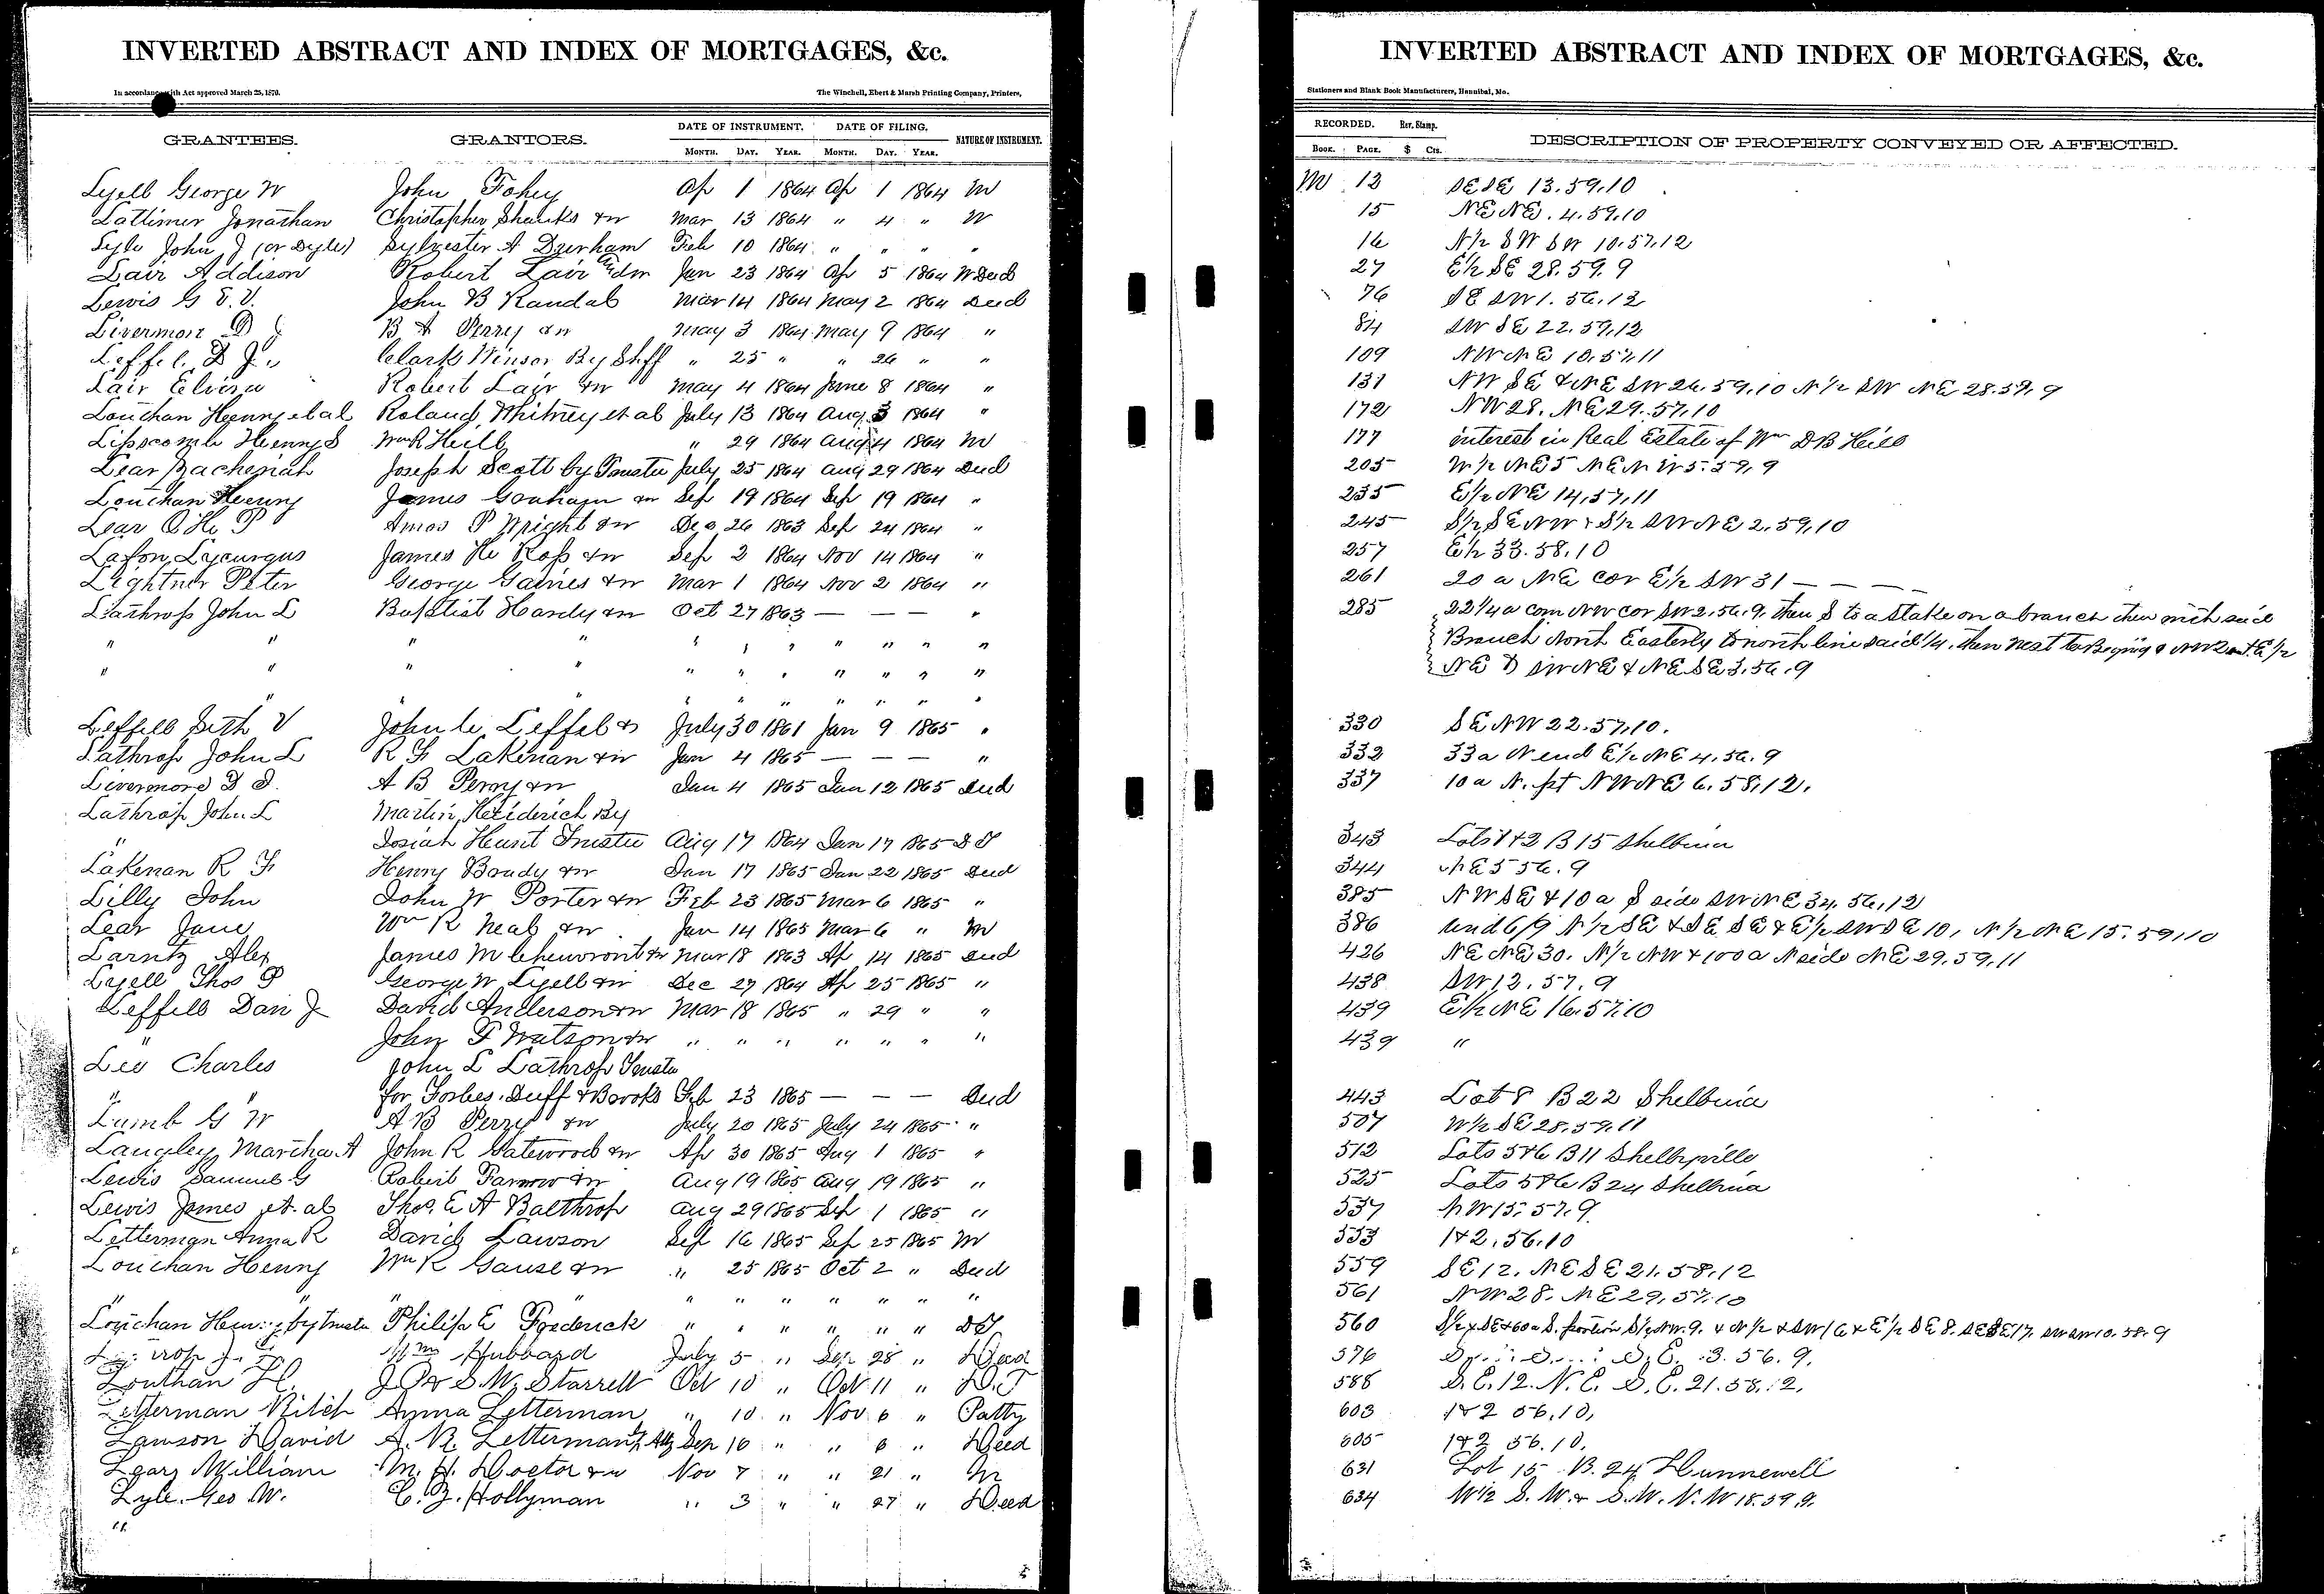 INVERTED ABSTRACT AND INDEX OF MORTGAGES, &c.
In accordance with Act approved March 25, 1870. The Winchell, Ebert & Marsh Printing Company, Printers,
GRANTEES. GRANTORS. DATE OF INSTRUMENT. DATE OF FILING. NATURE OF INSTRUMENT.
MONTH. DAY. YEAR. MONTH. DAY. YEAR.
Lyell George W John Fohey Ap 1 1864 Ap 1 1864 M
Lattimer Jonathan Christopher Shanks &w Mar 13 1864 " 4 " W
Lyle John J (or Dyle) Sylvester A Feb 10 1864 " " " "
Lair Addison Robert Lair Adm Jan 23 1864 Ap 5 1864 W Deed
Lewis G John B Randal Mar 14 1864 May 2 1864 Deed
Livermore D B A Perry &w May 3 1864 May 9 1864 "
Leffel D J Clark Winsor By Shff " 25 " " 26 " "
Lair Elvira Robert Lair &w May 4 1864 June 8 1864 "
Louthan Henry et al Roland Whitney et al July 13 1864 Aug 3 1864 "
Lipscomb Henry S " 29 1864 Aug 4 1864 M
Lear Zachariah Joseph Scott by Trustee July 25 1864 Aug 29 1864 Deed
Louthan Henry James &w Sep 19 1864 Sep 19 1864 "
Lear Amos P Wright &w Dec 26 1863 Sep 24 1864 "
Lafon Lycurgus James H Ross &w Sep 2 1864 Nov 14 1864 "
Lightner Peter George Gaines &w Mar 1 1864 Nov 2 1864 "
Lathrop John L Baptist Hardy &w Oct 27 1863 — — — "
" " " " " " " " " " "
" " " " " " " " " " "
" " " " " " " "
Leffell Seth V John C Leffel &w July 30 1861 Jan 9 1865 "
Lathrop John L R F Lakenan &w Jan 4 1865 — — — "
Livermore D D A B Perry &w Jan 4 1865 Jan 12 1865 Deed
Lathrop John L Martin Heiderich By
" Josiah Hunt Trustee Aug 17 1864 Jan 17 1865 D T
Lakenan R F Henry Boudy &w Jan 17 1865 Jan 22 1865 Deed
Lilly John John W Porter &w Feb 23 1865 Mar 6 1865 "
Lear Jane Wm R Neal &w Jan 14 1865 Mar 6 " M
Larntz Alex James M Chenworont &w Mar 18 1863 Ap 14 1865 Deed
Lyell Thos P George W Lyell &w Dec 27 1864 Ap 25 1865 "
Leffell Dan J David Anderson &w Mar 18 1865 " 29 " "
" John F Watson &w " " " " " " "
Lee Charles John L Lathrop Trustee
" " for Forbes, Duff & Brooks Feb 23 1865 — — — Deed
Lumb G W A B Perry &w July 20 1865 July 24 1865 "
Langley Martha A John R Gatewood &w Ap 30 1865 Aug 1 1865 "
Lewis Samuel G Robert Farmer &w Aug 19 1865 Aug 19 1865 "
Lewis James et al Thos. E A Balthrop Aug 29 1865 Sep 1 1865 "
Letterman Anna R David Lawson Sep 16 1865 Sep 25 1865 M
Louthan Henry Wm K Gause &w " 25 1865 Oct 2 " Deed
" " " " " " " " " " "
Louthan Henry by Trustee Philip E Frederick " " " " " " D T
Wm Hubbard July 5 " Sep 28 " Deed
Louthan H. J O & S. W. Starrett Oct 10 " Oct 11 " D.T
Letterman Ritch Anna Letterman " 10 " Nov 6 " Patty
Lawson David A. R. Letterman Sep 16 " " 6 " Deed
Leary William M. H. Doctor &w Nov 7 " " 21 " M
Lyle Geo W. C. Z. Hollyman " 3 " " 27 " Deed
"
INVERTED ABSTRACT AND INDEX OF MORTGAGES, &c.
Stationers and Blank Book Manufacturers, Hannibal, Mo.
RECORDED. Rev. Stamp. DESCRIPTION OF PROPERTY CONVEYED OR AFFECTED.
BOOK. PAGE. $ Cts.
M 13 SE SE 13.59.10
15 NE NE. 4.59.10
16 N½ SW SW 10.57.12
27 E½ SE 28.59.9
76 SE SW 1.56.12
84 SW SE 22.59.12
109 NW NE 10.57.11
131 NW SE & NE SW 26.59.10 N½ SW NE 28.59.9
172 NW 28. NE 29.57.10
177 interest in Real Estate of Wm D B Hill
205 W½ NE 5 NE NW 5.59.9
235 E½ NE 14.57.11
245 S½ SE NW & S½ SW NE 2.59.10
257 E½ 33.58.10
261 20 a NE cor E½ SW 31 — — —
285 22¼ a com NW cor SW 2.56.9. then S to a Stake on a branch then with said
Branch North Easterly to north line said ¼. then West to
NE & SW NE & NE SE 3.56.9
330 SE NW 22.57.10.
332 33 a N end E½ NE 4.56.9
337 10 a N. pt NW NE 6.58.12.
343 Lots 1 & 2 B 15 Shelbina
344 NE 5 56.9
385 NW SE & 10 a S side SW NE 34.56.12
386 und 6/9 N½ SE & SE SE & E½ SW SE 10, N½ NE 15.59.10
426 NE NE 30. N½ NW & 100 a N side NE 29.59.11
438 SW 12.57.9
439 E½ NE 16.57.10
439 "
443 Lot 8 B 22 Shelbina
507 W½ SE 28.59.11
512 Lots 5 & 6 B 11 Shelbyville
525 Lots 5 & 6 B 24 Shelbina
537 NW 15.57.9
553 1 & 2.56.10
559 SE 12. NE SE 21.58.12
561 NW 28. NE 29.57.10
560 S. portion S½ NW. 9. & N½ & SW 16 & E½ SE 8. SE SE 17. SW SW 10.58.9
576 3.56.9.
588 S.E. 12. N.E. S.E. 21.58.12.
603 1 & 2 56.10,
605 1 & 2 56.10.
631 Lot 15 B. 24 Hunnewell
634 W½ S.W. & S.W. N.W 18.59.9.